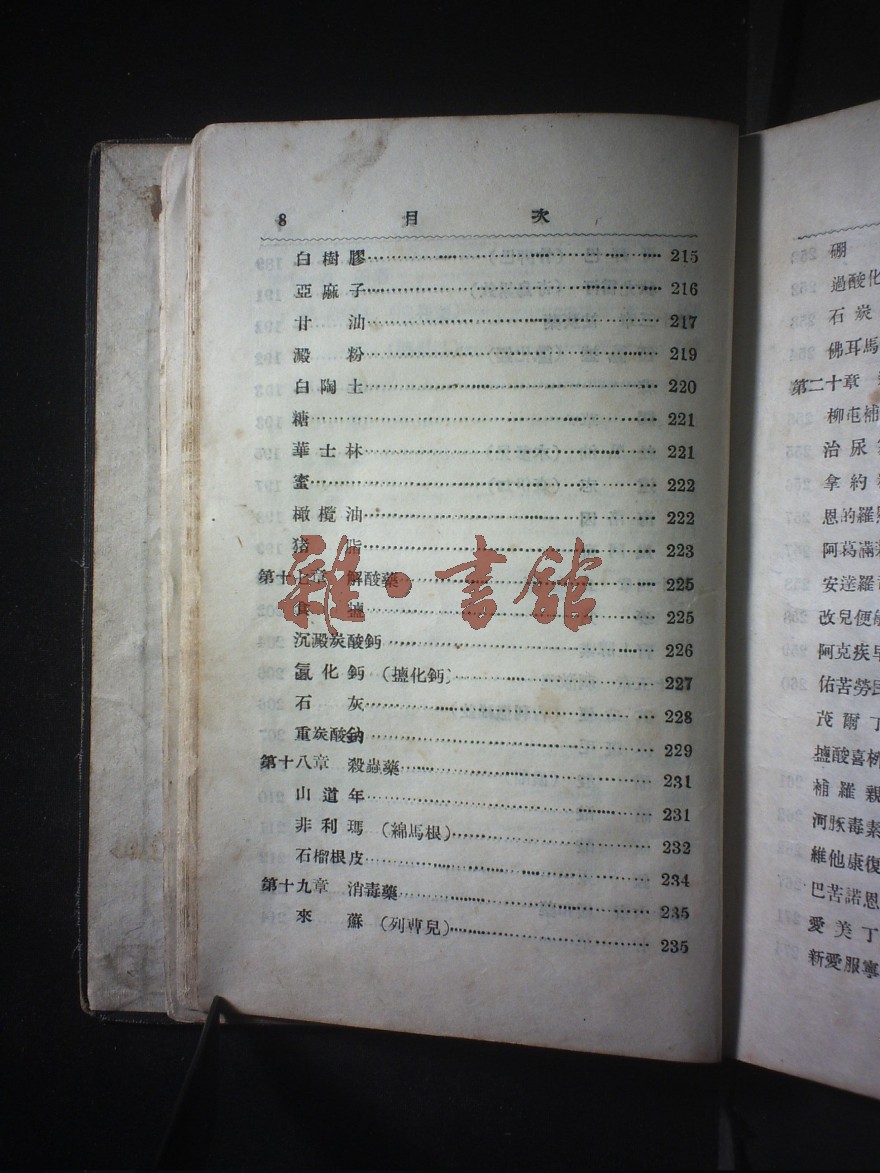 8 目 次
白樹膠 215
亞麻子 216
甘 油 217
澱 粉 219
白陶土 220
糖 221
華士林 221
蜜 222
橄欖油 222
猪 脂 223
第十七章 解酸藥 225
食 鹽 225
沉澱炭酸鈣 226
氯化鈣 (鹽化鈣) 227
石 灰 228
重炭酸鈉 229
第十八章 殺蟲藥 231
山道年 231
非利瑪 (綿馬根) 232
石榴根皮 234
第十九章 消毒藥 235
來 蘇 (列曹兒) 235
雜·書館
硼
過酸化
石炭
佛耳馬
第二十章
柳屯補
治尿
拿約
恩的羅
阿葛
安達羅
改兒便
阿克疾
佑苦勞
茂爾丁
鹽酸喜
補羅
河豚毒素
維他康復
巴苦諾恩
愛美丁
新愛服寧